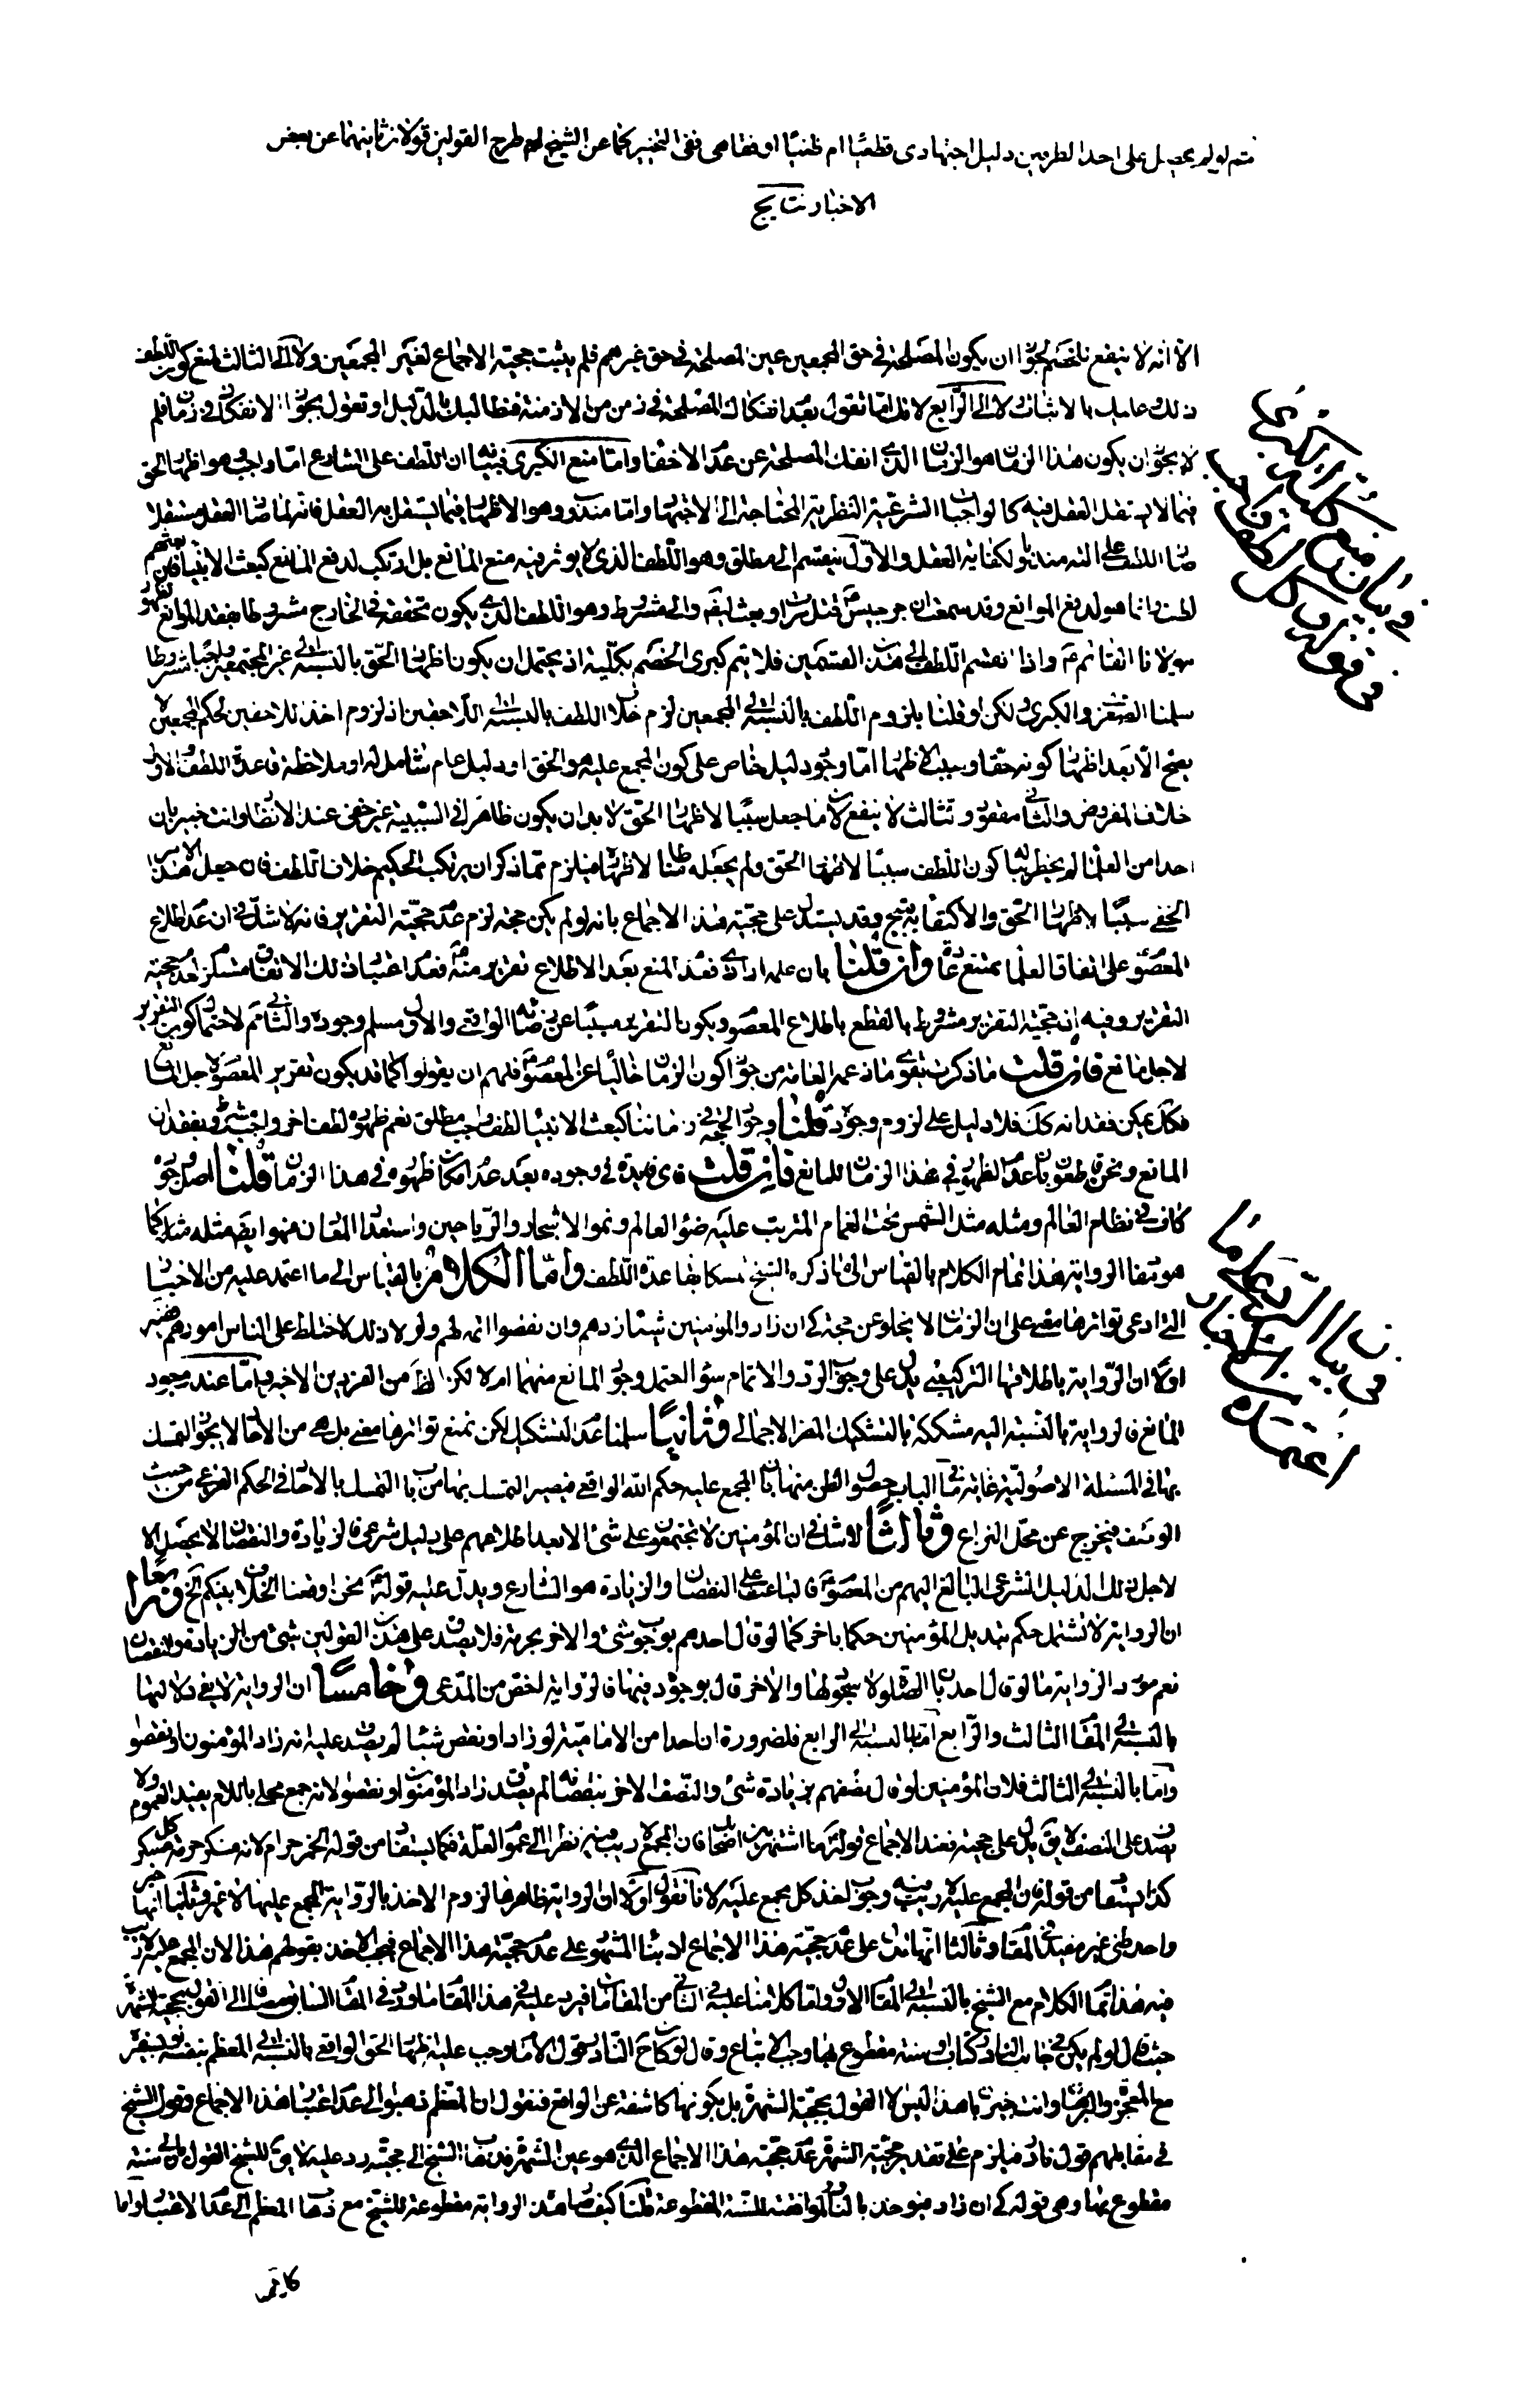 ثم لو لم يحصل على احد الطرفين دليل اجتهادى قطعيّا ام ظنيّا او فقاهى ففى التخيير كما عن الشيخ ام طرح القولين قولان ثانيهما عن بعض
الاخبار نتايج
الا انه لا ينفع الخصم لجواز ان يكون المصلحة فى حق المجمعين عين المصلحة فى حق غيرهم فلم يثبت حجية الاجماع لغير المجمعين ولا الى الثالث لمنع كون اللطف
ذلك عليك بالاثبات ولا الى الرابع لانك امّا تقول بعدم انفكاك المصلحة فى زمن من الازمنة فنطالبك بالدليل او تقول بجواز الانفكاك فى زمان فلم
لا يجوز ان يكون هذا الزمان هو الزمان الذى انفك المصلحة عن عدم الاخفاء وامّا منع الكبرى فبيانه ان اللطف على الشارع امّا واجب وهو اظهار الحق
فيما لا يستقل العقل فيه كالواجبات الشرعية النظرية المحتاجة الى الاظهار وامّا مندوب وهو الاظهار فيما يستقل به العقل فانه لما صار العقل مستقلا
صار اللطف على الله مندوبا لكفاية العقل والاول ينقسم الى مطلق وهو اللطف الذى لا يؤثر فيه منع المانع بل ارتكب لدفع المانع كبعث الانبياء فان بعثهم
لطف وانما هو لدفع الموانع وقد سمعت ان جرجيس قتل مرات وبعث ايضا والى مشروط وهو اللطف الذى يكون تحققه فى الخارج مشروطا بفقد المانع كظهور
مولانا القائم ع واذا انقسم اللطف الى هذين القسمين فلا يتم كبرى الخصم بكلية اذ يحتمل ان يكون اظهار الحق بالنسبة الى غير المجتمعين واجبا مشروطا
سلمنا الصغرى والكبرى لكن لو قلنا بلزوم اللطف بالنسبة الى المجمعين لزم خلاف اللطف بالنسبة الى اللاحقين اذ لزوم اخذ اللاحقين لحكم المجمعين لا
يصح الا بعد اظهار كونه حقا وسبب الاظهار امّا وجود دليل خاص على كون المجمع عليه هو الحق او دليل عام شامل له او ملاحظة قاعدة اللطف والاول
خلاف المفروض والثانى مفقود والثالث لا ينفع لان ما جعل سببا لاظهار الحق لا بد ان يكون ظاهرا فى السببية غير خفى عند الانظار وانت خبير بان
احدا من العلماء لم يخطر بباله كون اللطف سببا لاظهار الحق ولم يجعله مظنّا لاظهاره فيلزم مما ذكر ان يرتكب الحكيم خلاف اللطف فان جعل هذا الامر
الخفى سببا لاظهار الحق والاكتفاء به قبيح وقد يستدل على حجية هذا الاجماع بانه لو لم يكن حجة لزم عدم حجية التقرير فانه لا شك فى ان عدم اطلاع
المعصوم على اتفاق العلماء ممتنع عادة وان قلنا بان علمه ارادى فعدم المنع بعد الاطلاع تقرير منه فعدم اعتبار ذلك الاتفاق مستلزم لعدم حجية
التقرير وفيه ان حجية التقرير مشروط بالقطع باطلاع المعصوم وبكون التقرير مسببا عن رضائه الواقعى والاول مسلم وجوده والثانى ثم لاحتمال كون التقرير
لاجل مانع فان قلت ما ذكرت يقوى ما زعمه العامة من جواز كون الزمان خاليا عن المعصوم فلهم ان يقولوا كما قد يكون تقرير المعصوم لاجل المانع
فكك يمكن فقدانه كك فلا دليل على لزوم وجوده قلنا وجود الحجة فى زماننا كبعث الانبياء لطف واجب مطلق نعم ظهوره لطف اخر واجب مشروط بفقدان
المانع ونحن قاطعون بان عدم الظهور فى هذا الزمان للمانع فان قلت فاى فايدة فى وجوده بعد عدم امكان ظهوره فى هذا الزمان قلنا اصل وجوده
كاف فى نظام العالم ومثله مثل الشمس تحت الغمام المترتب عليه ضوء العالم ونمو الاشجار والرياحين واستعداد المعادن فهو ايضا مثله مثلها كما
هو مفاد الرواية هذا تمام الكلام بالقياس الى ما ذكره الشيخ تمسكا بقاعدة اللطف وامّا الكلام بالقياس الى ما اعتمد عليه من الاخبار
التى ادعى تواترها معنى على ان الزمان لا يخلو عن حجة كى ان زاد المؤمنين شيئا ردهم وان نقصوا اتمه لهم ولو لا ذلك لاختلط على الناس امورهم ففيه
اولا ان الرواية باطلاقها التركيبى يدل على وجوب الرد والاتمام سواء احتمل وجود المانع منهما ام لا لكن الظ من الفردين الاخير وامّا عند وجود
المانع فالرواية بالنسبة اليه مشككة بالتشكيك المضر الاجمالى وثانيا سلمنا عدم التشكيك لكن نمنع تواترها معنى بل هى من الاحاد لا يجوز التمسك
بها فى المسئلة الاصولية غاية ما فى الباب حصول الظن منها بان المجمع عليه حكم الله الواقعى فيصير التمسك بها من باب التمسك بالاحاد فى الحكم الفرعى من حيث
الوصف فيخرج عن محل النزاع وثالثا لا شك فى ان المؤمنين لا يجتمعون على شئ الا بعد اطلاعهم على دليل شرعى فالزيادة والنقصان لا يحصل الا
لاجل ذلك الدليل الشرعى البالغ اليهم من المعصوم فالباعث على النقصان والزيادة هو الشارع ويدل عليه قوله ع نحن اوقعنا الخلاف بينكم الخ ورابعا
ان الرواية لا تشمل حكم تبديل المؤمنين حكما باخر كما لو قال احدهم بوجوب شئ والاخر بحرمته فلا يصدق على هذين القولين شئ من الزيادة والنقصان
نعم مورد الرواية ما لو قال احد بان الصلوة لا سجود لها والاخر قال بوجوده فيها فالرواية اخص من المدعى وخامسا ان الرواية لا يفى دلالتها
بالنسبة الى المقام الثالث والرابع امّا بالنسبة الى الرابع فلضرورة ان احدا من الامامية لو زاد او نقص شيئا لم يصدق عليه انه زاد المؤمنون او نقصوا
وامّا بالنسبة الى الثالث فلان المؤمنين لو قال نصفهم بزيادة شئ والنصف الاخر بنقصانه لم يصدق زاد المؤمنون او نقصوا لانه جمع محلى باللام يفيد العموم ولا
يصدق على النصف لا يق يدل على حجية هذا الاجماع قوله ع خذ ما اشتهر بين اصحابك فان المجمع عليه لا ريب فيه نظرا الى عموم العلة فكما يستفاد من قوله الخمر حرام لانه مسكر حرمة كل مسكر
كذا يستفاد من قوله فان المجمع عليه لا ريب فيه وجوب اخذ كل مجمع عليه لانا نقول اولا ان الرواية ظاهرها لزوم الاخذ بالرواية المجمع عليها لا غير وثانيا انها خبر
واحد ظنى غير مفيد فى المقام وثالثا انها تدل على عدم حجية هذا الاجماع اذ بناء المشهور على عدم حجية هذا الاجماع فيجب الاخذ بقولهم هذا لان المجمع عليه لا ريب
فيه هذا تمام الكلام مع الشيخ بالنسبة الى المقام الاول وامّا كلامنا عليه فى الثانى من المقامات فيرد عليه فى هذا المقام ما ورد فى المقام السابق مضافا الى القول بحجية الشهرة
حيث قال لو لم يكن فى جانب النادر كتاب او سنة مقطوع بها وجب الاتباع وقال لو كان الحق النادر قول الامام وجب عليه اظهار الحق الواقعى بالنسبة الى المعظم بنفسه او بسفير
مع المعجز والبرهان وانت خبير بان هذا ليس الا القول بحجية الشهرة بل بكونها كاشفة عن الواقع فنقول ان المعظم ذهبوا الى عدم اعتبار هذا الاجماع وقول الشيخ
فى مقابلهم قول نادر فيلزم على تقدير حجية الشهرة عدم حجية هذا الاجماع الذى هو عين الشهرة فذهاب الشيخ الى حجيته رد عليه لا يق للشيخ القول بان سنة
مقطوع بها وهى قوله كى ان زاد فيؤخذ بالنادر لموافقته للسنة المقطوعة قلنا كيف صار هذه الرواية مقطوعة للشيخ مع ذهاب المعظم الى عدم الاعتبار وامّا